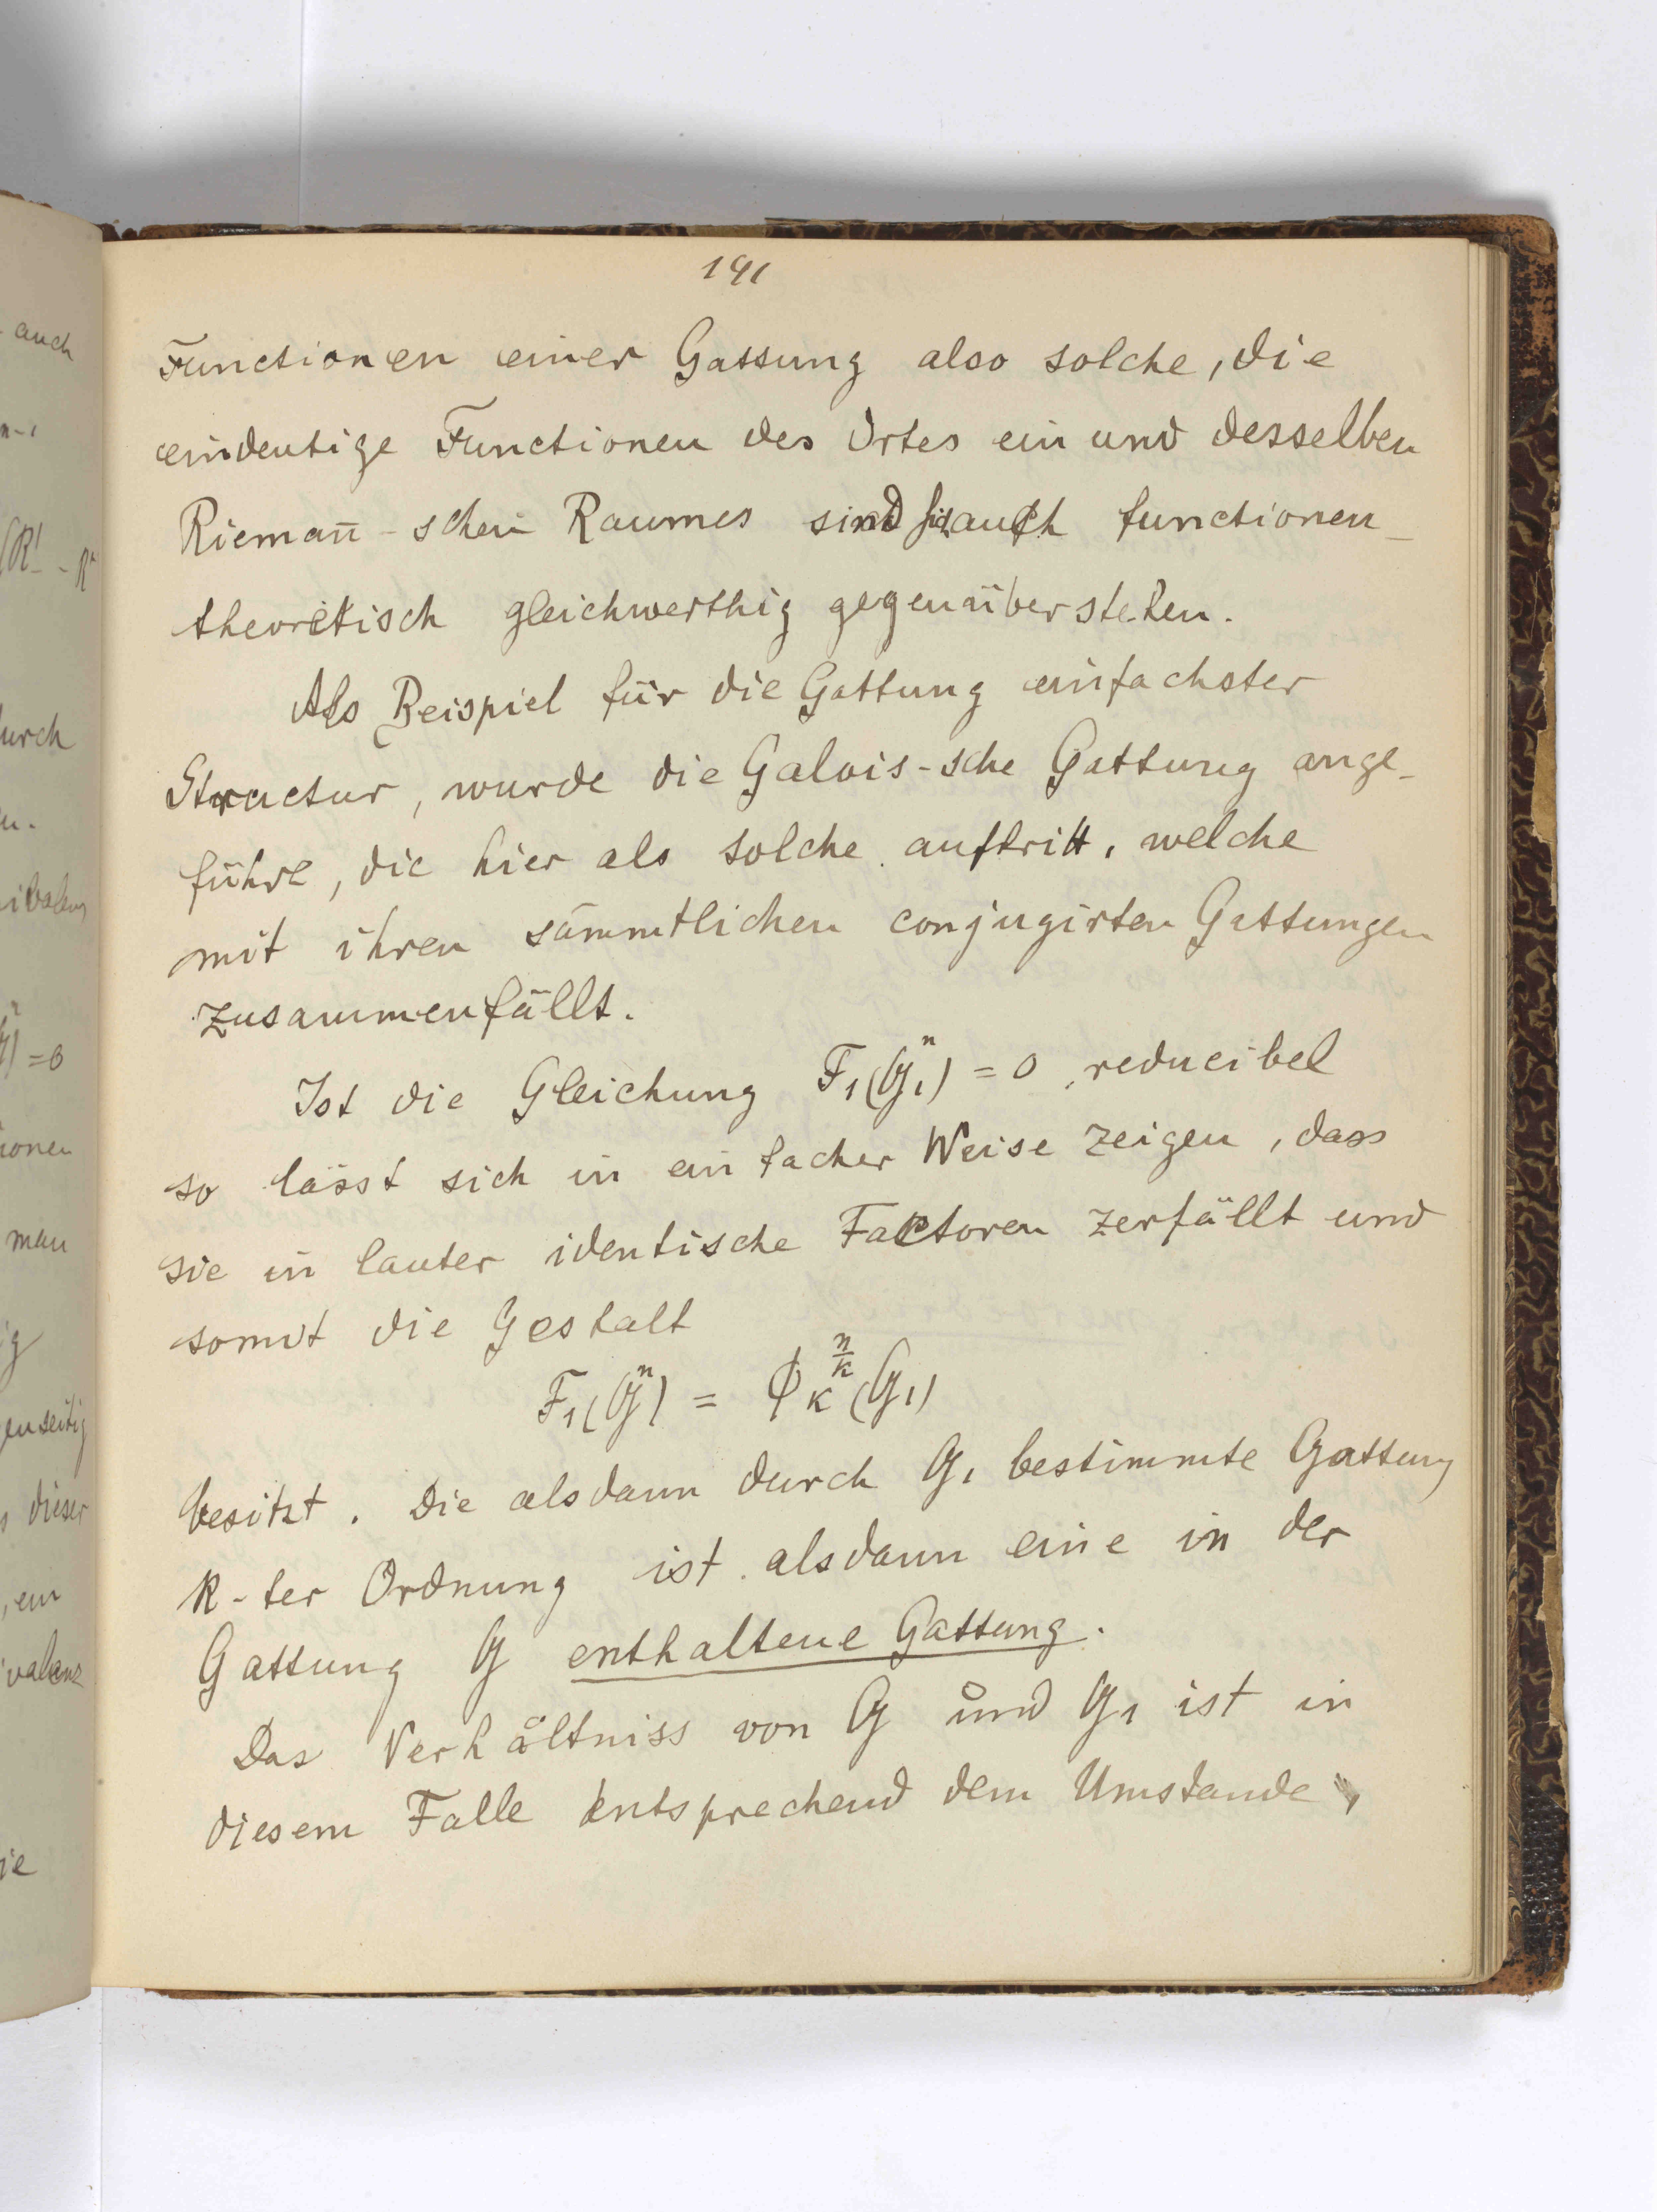 191
Functionen einer Gattung also solche, die
eindeutige Functionen des Ortes ein und desselben
Riemañ-schen Raumes sind auch functionen-
theoretisch gleichwerthig gegenüberstehen.
Als Beispiel für die Gattung einfachster
Structur, wurde die Galois-sche Gattung ange-
führt, die hier als solche auftritt, welche
mit ihren sämmtlichen conjugirten Gattungen
zusammenfällt.
Ist die Gleichung F₁(G₁ⁿ) = 0 reducibel
so lässt sich in einfacher Weise zeigen, dass
sie in lauter identische Factoren zerfällt und
somit die Gestalt
F₁(Gⁿ) = Φ_k^{n/k}(G₁)
besitzt. Die alsdann durch G₁ bestimmte Gattung
k-ter Ordnung ist alsdann eine in der
Gattung G enthaltene Gattung.
Das Verhältniss von G und G₁ ist in
diesem Falle entsprechend dem Umstande,
auch
durch
=0
man
dieser
ein